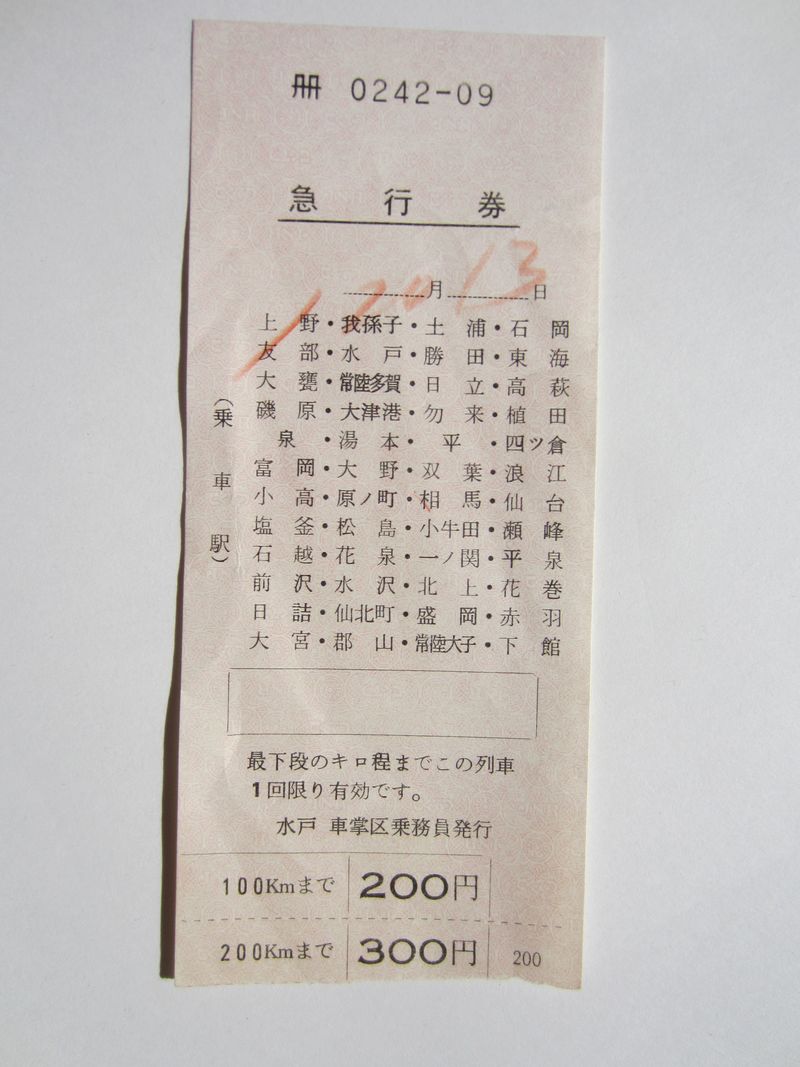 冊 0242-09
急行券
月 日
上野・我孫子・土浦・石岡
友部・水戸・勝田・東海
大甕・常陸多賀・日立・高萩
磯原・大津港・勿来・植田
泉・湯本・平・四ツ倉
富岡・大野・双葉・浪江
小高・原ノ町・相馬・仙台
塩釜・松島・小牛田・瀬峰
石越・花泉・一ノ関・平泉
前沢・水沢・北上・花巻
日詰・仙北町・盛岡・赤羽
大宮・郡山・常陸大子・下館
（乗車駅）
最下段のキロ程までこの列車
1回限り有効です。
水戸 車掌区乗務員発行
100Kmまで 200円
200Kmまで 300円 200